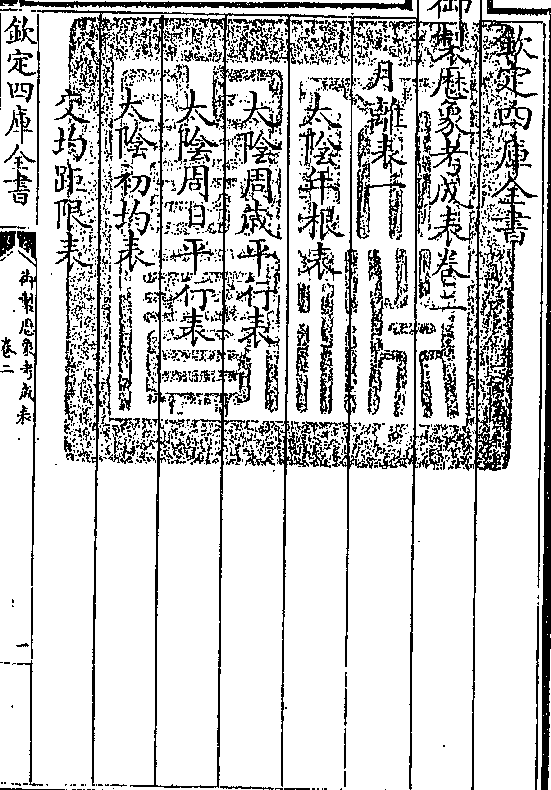 欽定四庫全書
御製厯象考成表卷二
月離表一
太陰年根表
太陰周歲平行表
太陰周日平行表
太陰初均表
交均距限表
欽定四庫全書
御製厯象考成表
卷二
一